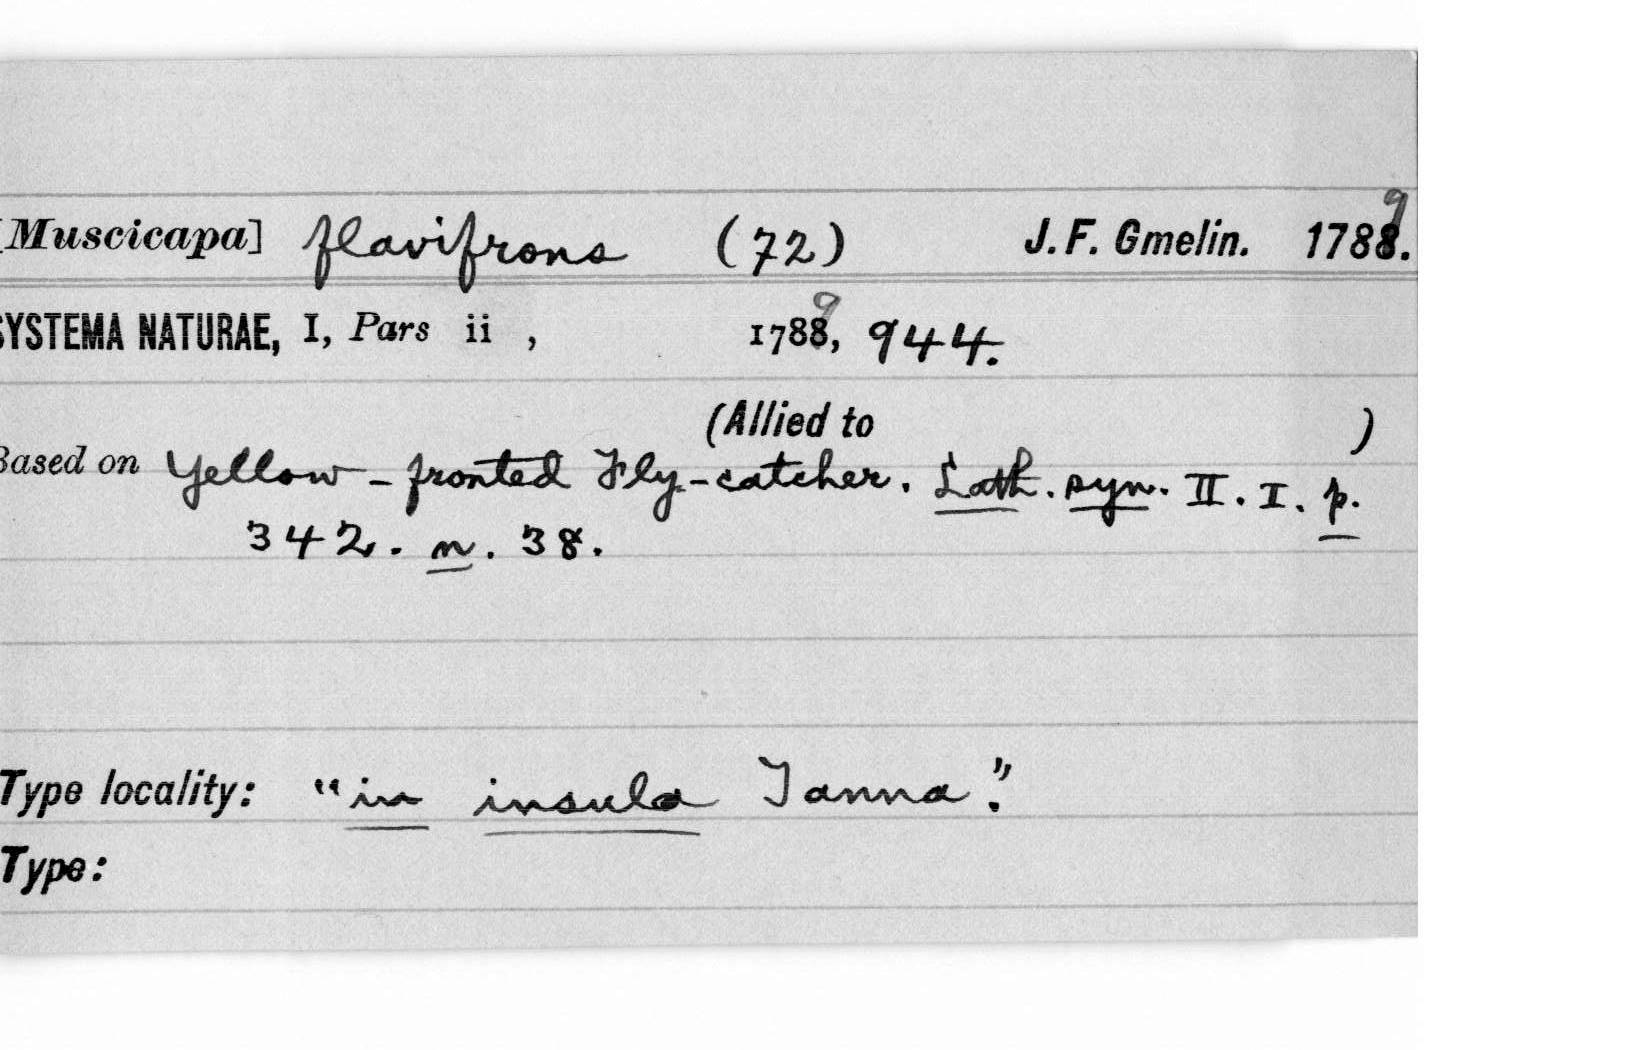 [Muscicapa] flavifrons (72) J. F. Gmelin. 1789.
SYSTEMA NATURAE, I, Pars ii , 1789, 944.
(Allied to )
Based on Yellow-fronted Fly-catcher. Lath. syn. II. I. p.
342. n. 38.
Type locality: "in insula Tanna."
Type: